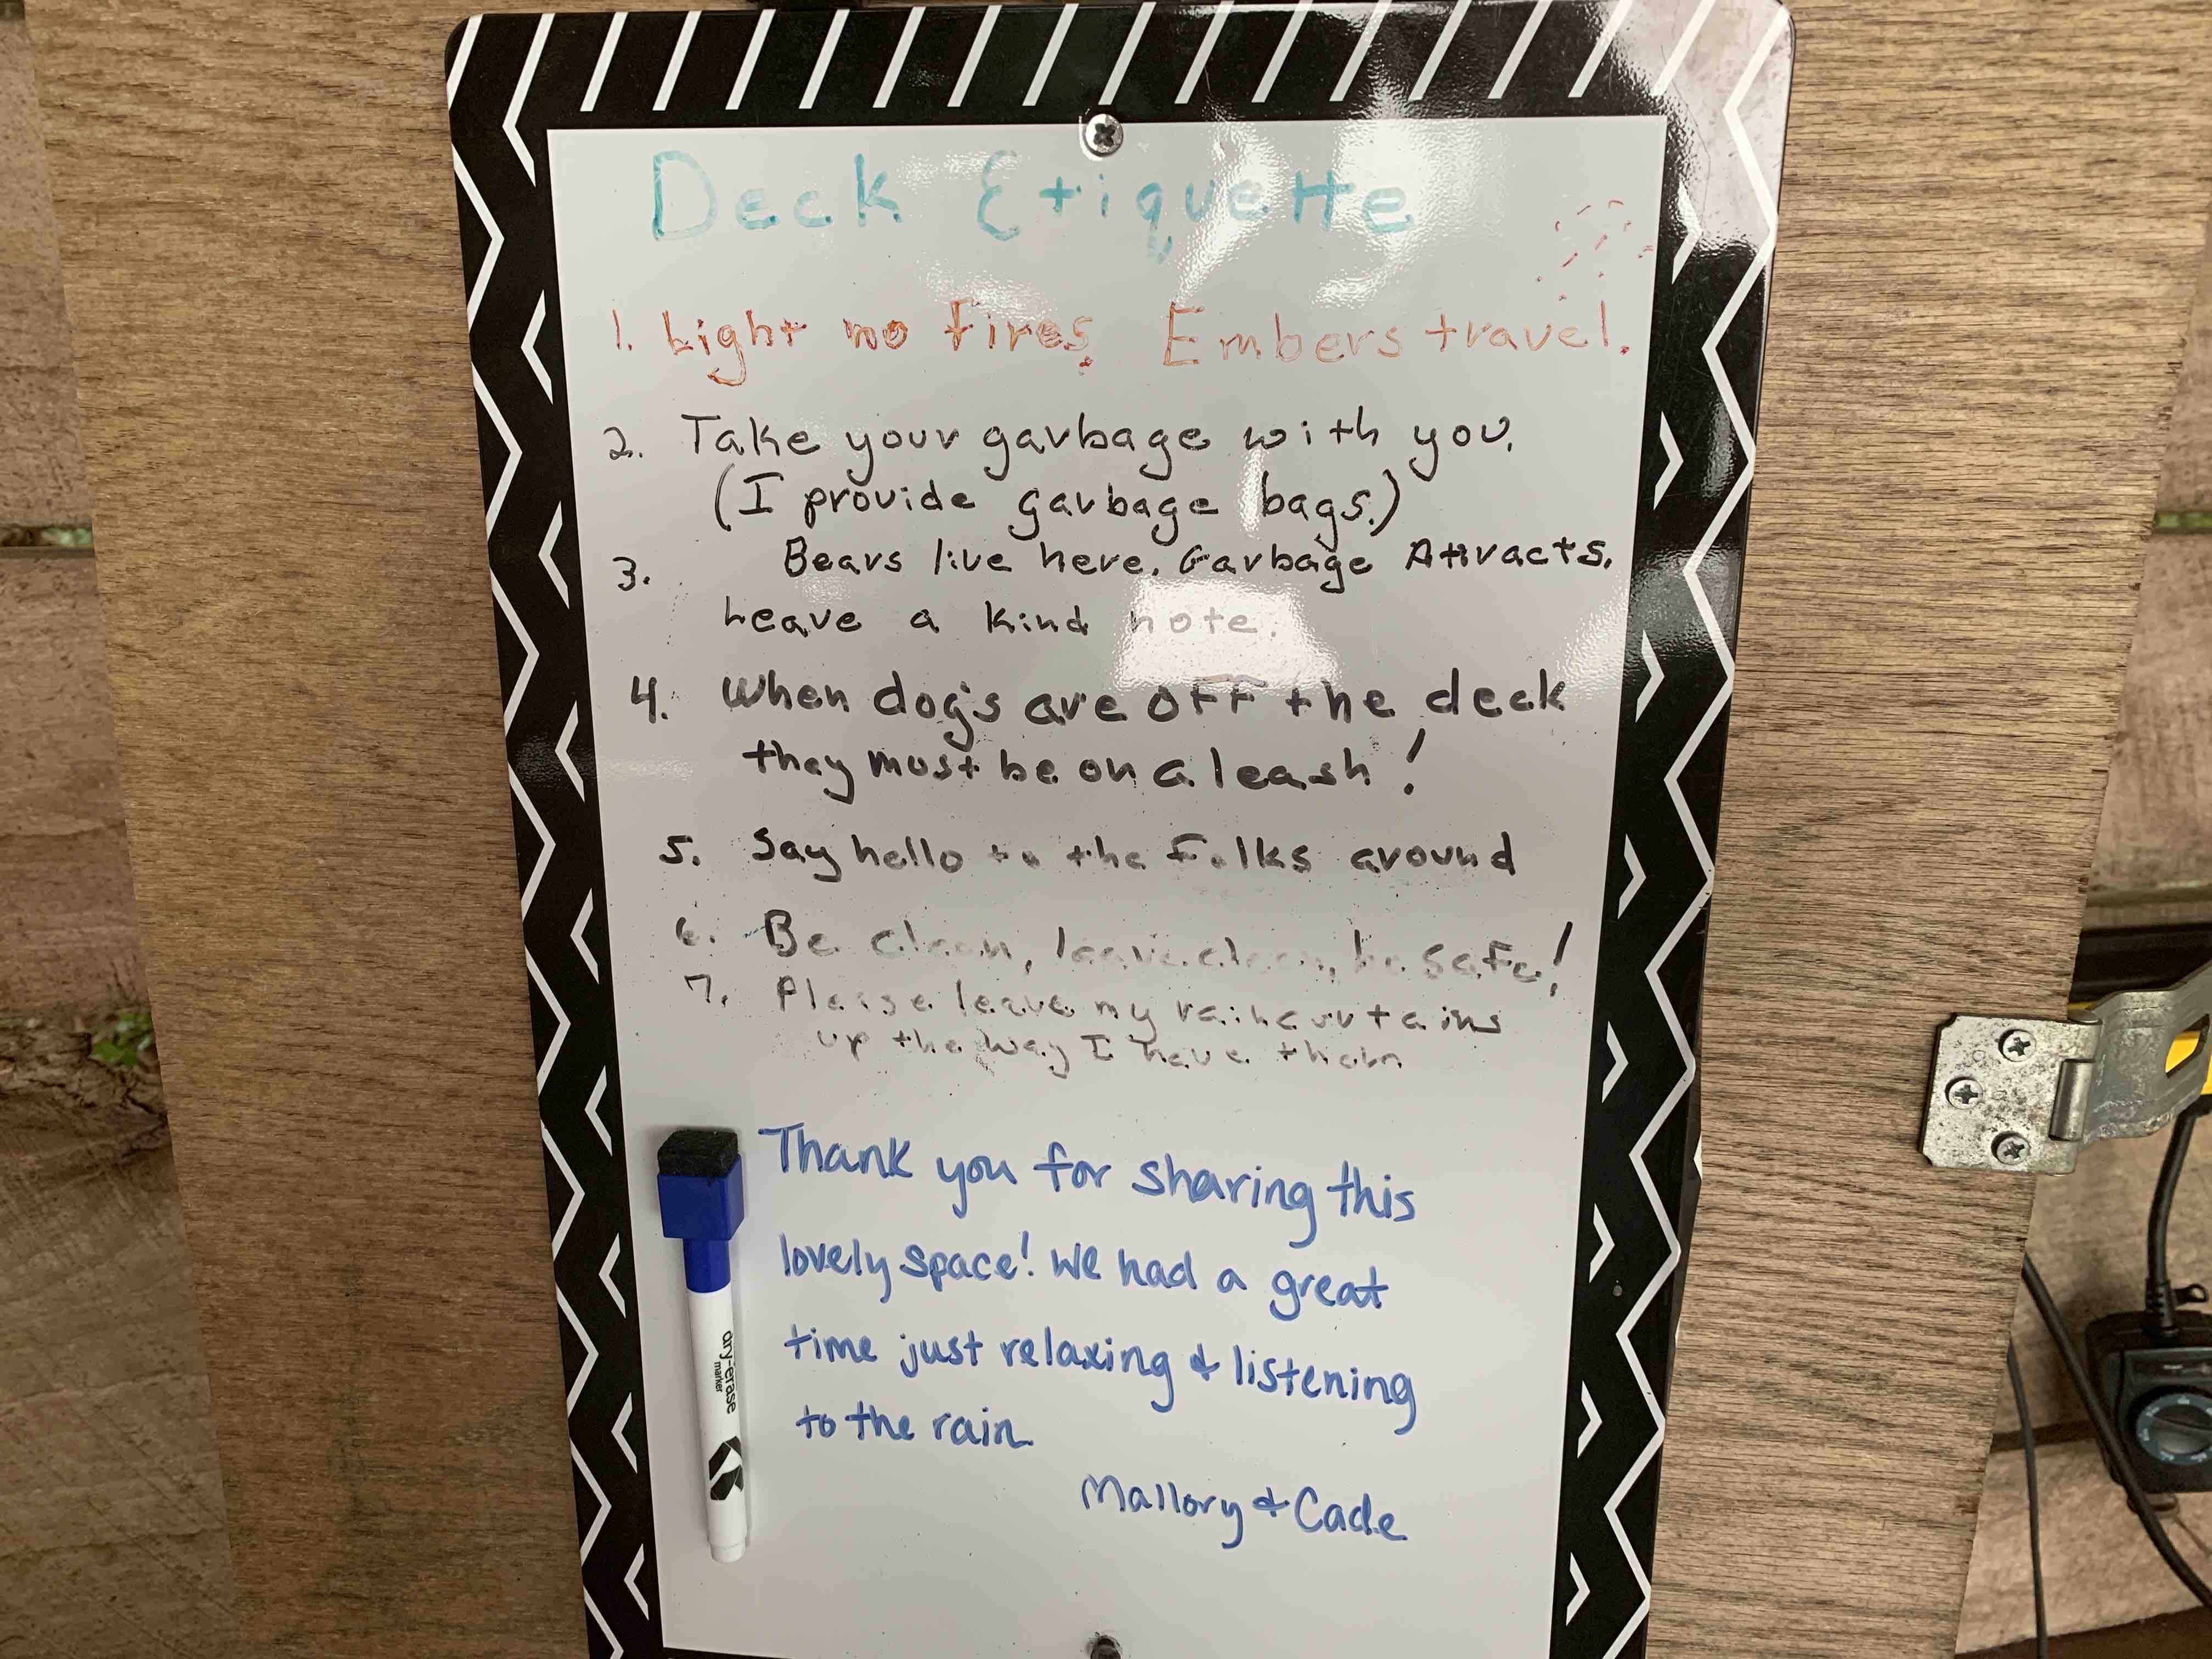 Deck Etiquette
1. Light no fires. Embers travel.
2. Take your garbage with you.
(I provide garbage bags.)
3. Bears live here. Garbage Attracts.
Leave a kind note.
4. When dogs are off the deck
they must be on a leash!
5. Say hello to the folks around
6. Be clean, leave clean, be safe!
7. Please leave my raincurtains
up the way I have them
Thank you for sharing this
lovely space! We had a great
time just relaxing & listening
to the rain.
Mallory & Cade
dry-erase
marker